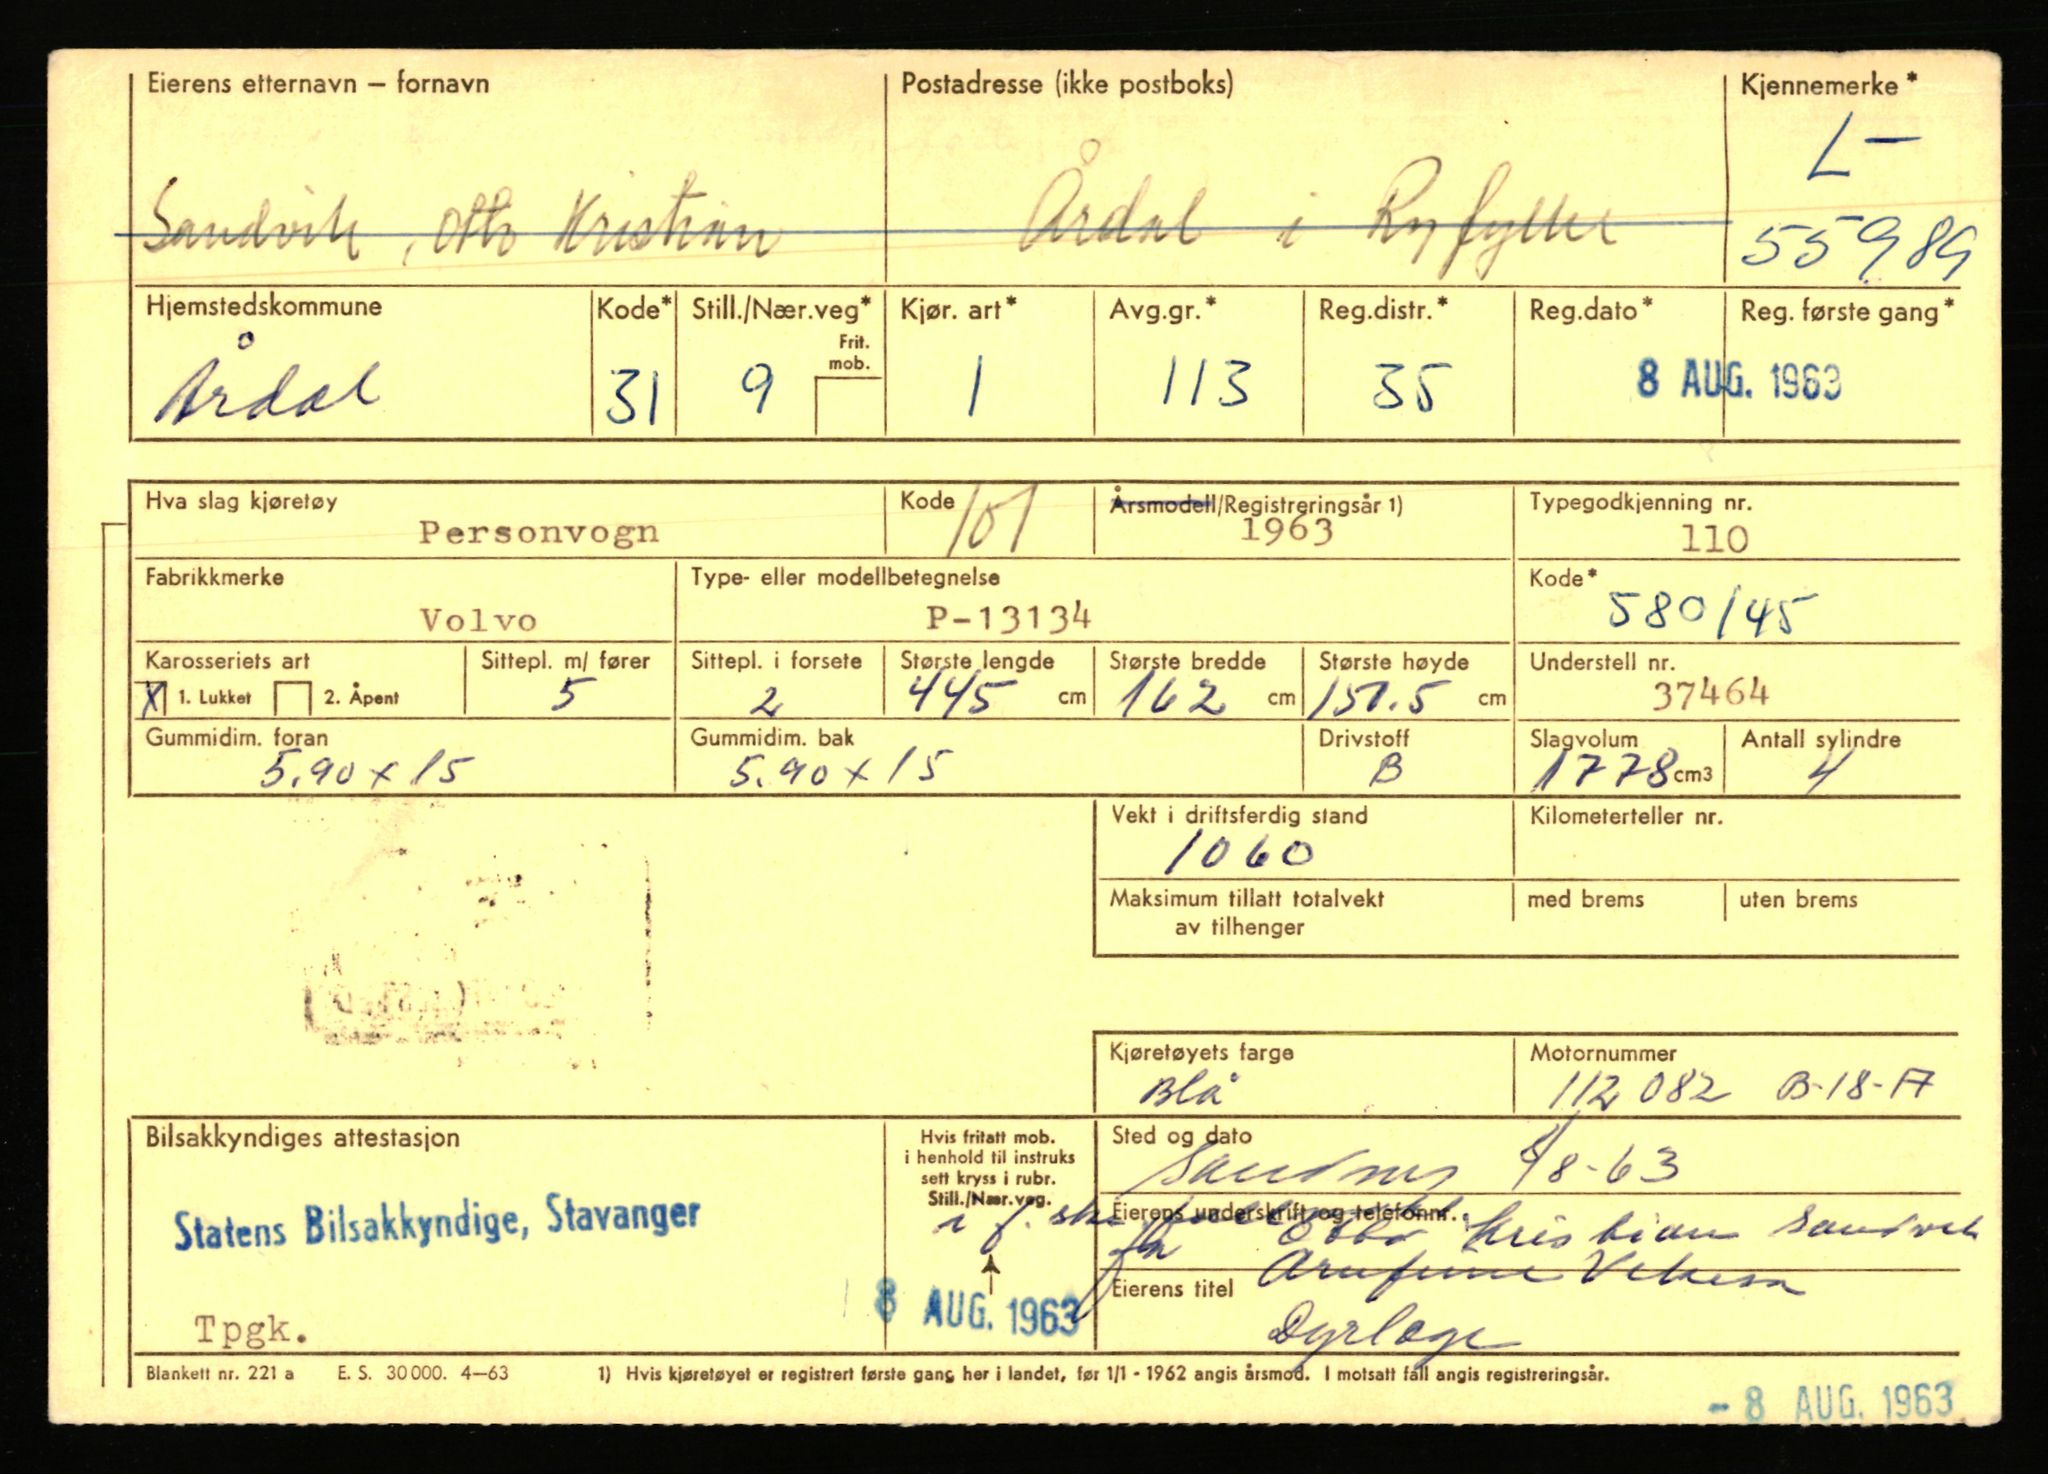 Eierens etternavn – fornavn Postadresse (ikke postboks) Kjennemerke*
L-
Sandvik, Otto Kristian Årdal i Ryfylke 55989
Hjemstedskommune Kode* Still./Nær.veg* Kjør. art* Avg.gr.* Reg.distr.* Reg.dato* Reg. første gang*
Frit. mob.
Årdal 31 9 1 113 35 8 AUG. 1963
Hva slag kjøretøy Kode Årsmodell/Registreringsår 1) Typegodkjenning nr.
Personvogn 101 1963 110
Fabrikkmerke Type- eller modellbetegnelse Kode*
Volvo P-13134 580/45
Karosseriets art Sittepl. m/ fører Sittepl. i forsete Største lengde Største bredde Største høyde Understell nr.
X 1. Lukket 2. Åpent 5 2 445 cm 162 cm 151.5 cm 37464
Gummidim. foran Gummidim. bak Drivstoff Slagvolum Antall sylindre
5.90 x 15 5.90 x 15 B 1778 cm3 4
Vekt i driftsferdig stand Kilometerteller nr.
1060
Maksimum tillatt totalvekt med brems uten brems
av tilhenger
Kjøretøyets farge Motornummer
Blå 112082 B-18-A
Bilsakkyndiges attestasjon Hvis fritatt mob. Sted og dato
i henhold til instruks
sett kryss i rubr.
Still./Nær.veg.
Sandnes 8/8-63
Statens Bilsakkyndige, Stavanger
Eierens underskrift og telefonnr.
Otto Kristian Sandvik
Eierens titel
8 AUG. 1963
Tpgk.
Dyrlæge
Blankett nr. 221 a E. S. 30 000. 4–63 1) Hvis kjøretøyet er registrert første gang her i landet, før 1/1 - 1962 angis årsmod. I motsatt fall angis registreringsår.
- 8 AUG. 1963